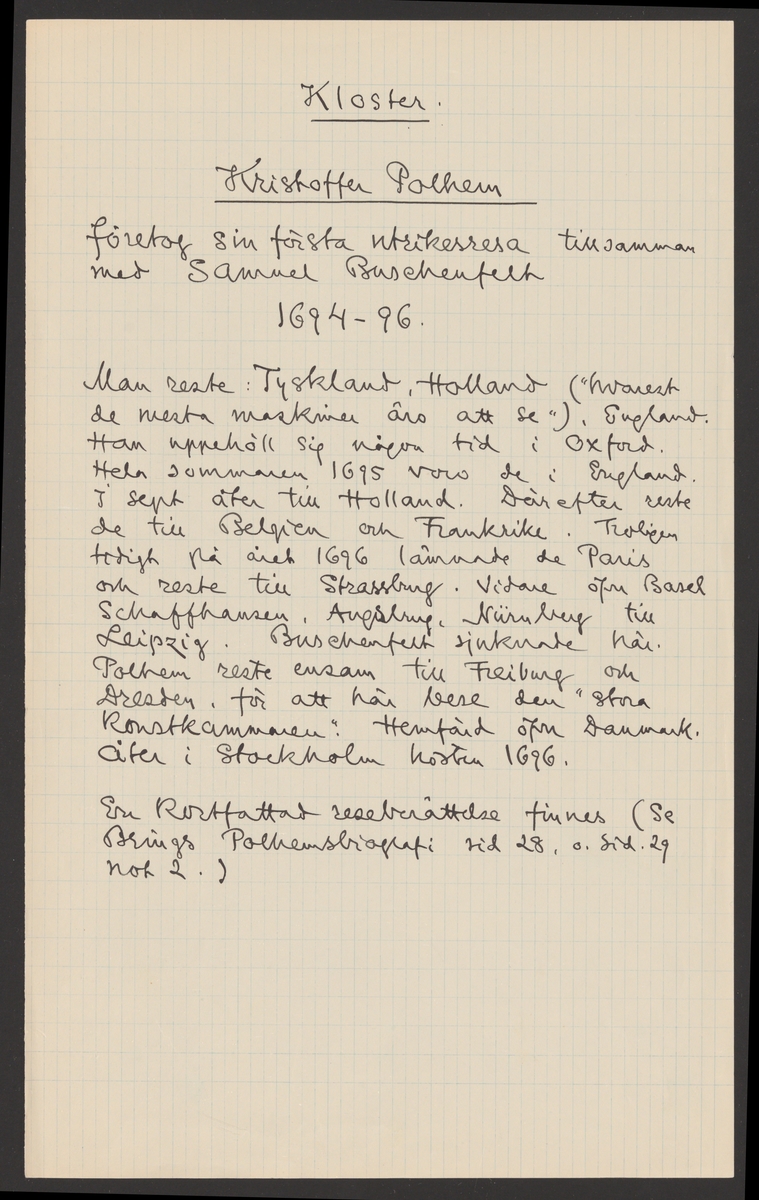 Kloster.
Kristoffer Polhem
företog sin första utrikesresa tillsamman
med Samuel Buschenfelt
1694-96.
Man reste: Tyskland, Holland ("hvarest
de mesta maskiner äro att se"), England.
Han uppehöll sig någon tid i Oxford.
Hela sommaren 1695 voro de i England.
I sept åter till Holland. Därefter reste
de till Belgien och Frankrike. Troligen
tidigt på året 1696 lämnade de Paris
och reste till Strassburg. Vidare öfver Basel
Schaffhausen, Augsburg, Nürnberg till
Leipzig. Buschenfelt sjuknade här.
Polhem reste ensam till Freiburg och
Dresden, för att här bese den "stora
Konstkammaren". Hemfärd öfver Danmark.
Åter i Stockholm hösten 1696.
En Kortfattad reseberättelse finnes (Se
Brings Polhemsbiografi sid 28, o. sid. 29
not 2.)